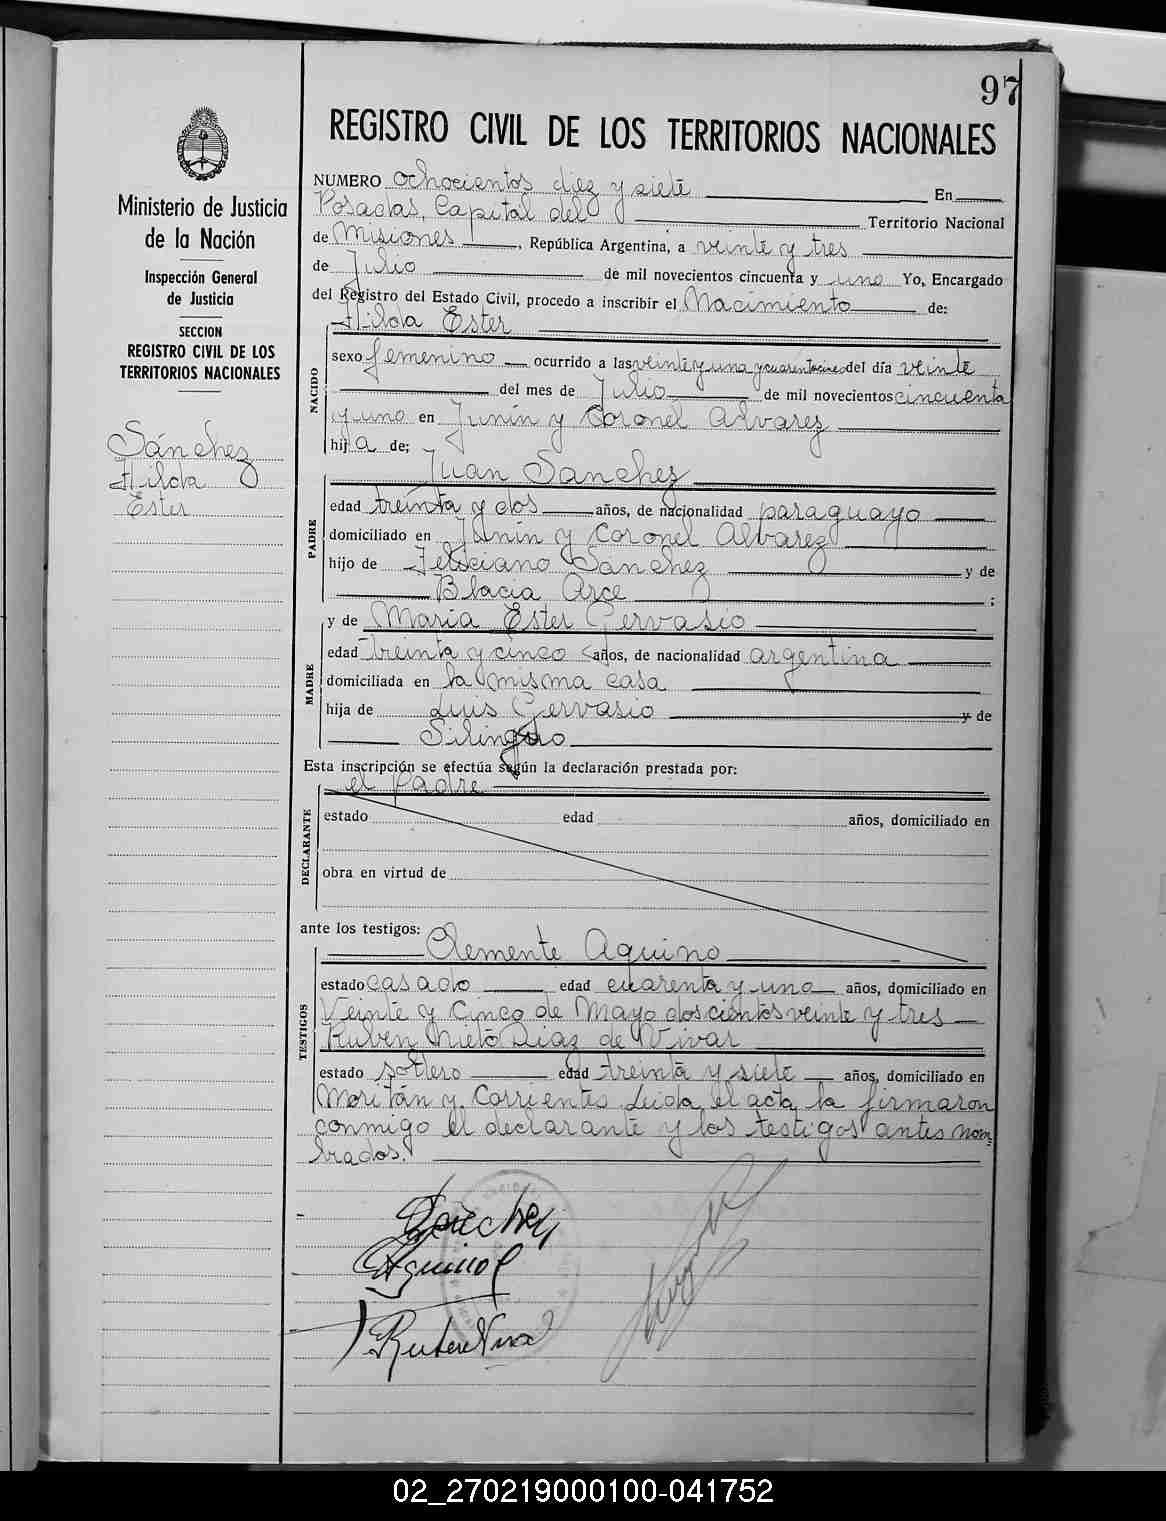 97
REGISTRO CIVIL DE LOS TERRITORIOS NACIONALES
Ministerio de Justicia
de la Nación
Inspección General
de Justicia
SECCION
REGISTRO CIVIL DE LOS
TERRITORIOS NACIONALES
Sánchez
Hilda
Ester
NUMERO ochocientos diez y siete En
Posadas, Capital del Territorio Nacional
de Misiones, República Argentina, a veinte y tres
de Julio de mil novecientos cincuenta y uno Yo, Encargado
del Registro del Estado Civil, procedo a inscribir el Nacimiento de:
Hilda Ester
NACIDO
sexo femenino ocurrido a las veinte y una y cuarenta cinco del día veinte
del mes de Julio de mil novecientos cincuenta
y uno en Junín y Coronel Alvarez
hija de;
Juan Sanchez
PADRE
edad treinta y dos años, de nacionalidad paraguayo
domiciliado en Junín y Coronel Alvarez
hijo de Feliciano Sánchez y de
Blacia Arce ;
y de María Ester Gervasio
MADRE
edad treinta y cinco años, de nacionalidad argentina
domiciliada en la misma casa
hija de Luis Gervasio y de
Silingo
Esta inscripción se efectúa según la declaración prestada por:
el Padre
DECLARANTE
estado edad años, domiciliado en
obra en virtud de
ante los testigos:
Clemente Aquino
TESTIGOS
estado casado edad cuarenta y uno años, domiciliado en
Veinte y Cinco de Mayo doscientos veinte y tres
Ruben Nieto Diaz de Vivar
estado soltero edad treinta y siete años, domiciliado en
Moritán y Corrientes. Leida el acta, la firmaron
conmigo el declarante y los testigos antes nom-
brados.
Sanchez
Aquino
02_270219000100-041752